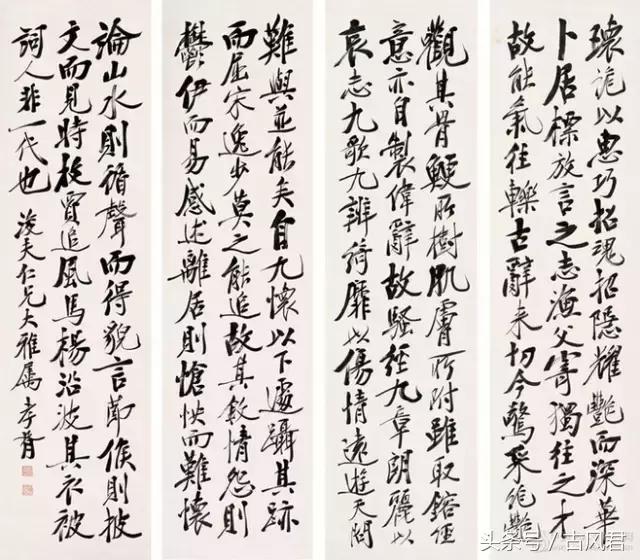 觀其骨鯁所樹肌膚所附雖取鎔經
意亦自製偉辭故騷經九章朗麗以
哀志九歌九辨綺靡以傷情遠遊天問
瓌詭以惠巧招魂招隱耀艷而深華
卜居標放言之志漁父寄獨往之才
故能氣往轢古辭來切今驚采絕艷
難與並能矣自九懷以下遽躡其跡
而屈宋逸步莫之能追故其敘情怨則
鬱伊而易感述離居則愴怏而難懷
論山水則循聲而得貌言節候則披
文而見時枚賈追風馬楊沿波其衣被
詞人非一代也 浚夫仁兄大雅屬 孝胥
头条号/古风君